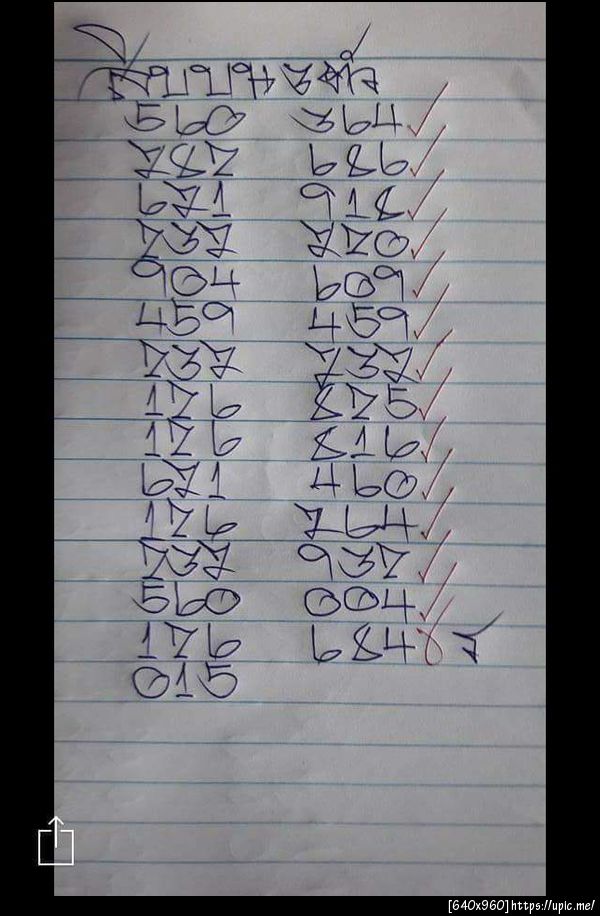 รูดบน 3 ตัว
560 364
787 686
671 918
737 770
904 609
459 459
737 737
176 875
176 816
671 460
176 764
737 937
560 004
176 684 7
015
[640x960]https://upic.me/